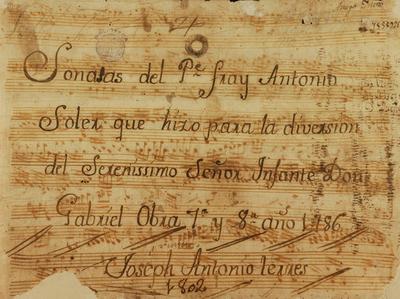 Sonatas del Pe. fray Antonio
Soler que hizo para la diversion
del Serenissimo Señor Infante Don
Gabriel Obra 7a. y 8a. año 1786
Joseph Antonio Terres
1802